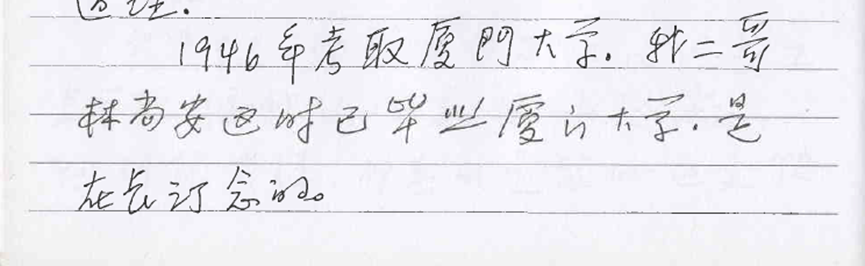 道理.
1946年考取厦門大学. 我二哥
林尚安这时已毕业厦门大学. 是
在长汀念的。